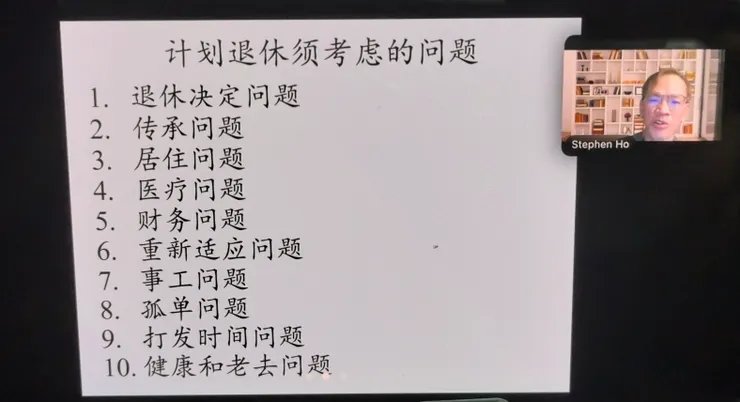 计划退休须考虑的问题
1. 退休决定问题
2. 传承问题
3. 居住问题
4. 医疗问题
5. 财务问题
6. 重新适应问题
7. 事工问题
8. 孤单问题
9. 打发时间问题
10. 健康和老去问题
Stephen Ho